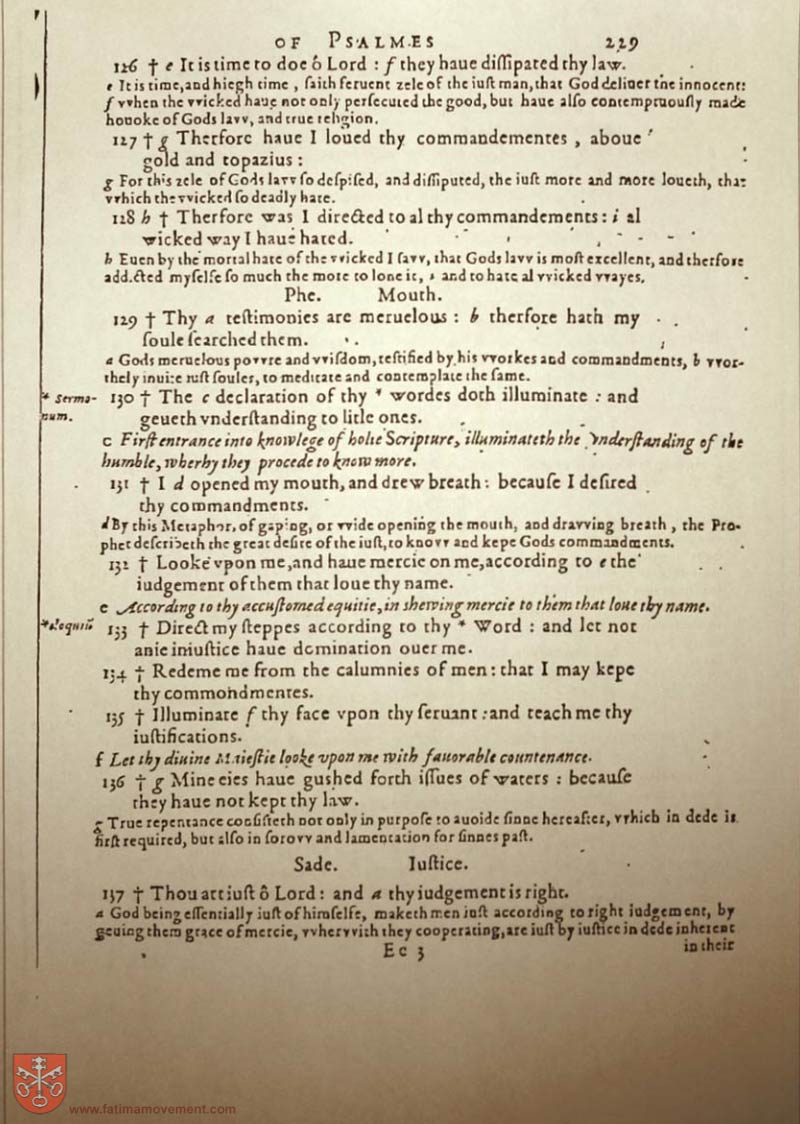 OF PSALMES 229
126 † e It is time to doe ô Lord : f they haue diſſipated thy law.
e It is time, and hiegh time , ſaith feruent zele of the iuſt man, that God deliuer the innocent:
f vvhen the vvicked haue not only perſecuted the good, but haue alſo contemptuouſly made
hovoke of Gods lavv, and true religion.
127 † g Therfore haue I loued thy commandementes , aboue
gold and topazius :
g For this zele of Gods lavv ſo deſpiſed, and diſſiputed, the iuſt more and more loueth, that
vvhich the vvicked ſo deadly hate.
128 h † Therfore was I directed to al thy commandements : i al
wicked way I haue hated.
h Euen by the mortal hate of the vvicked I ſavv, that Gods lavv is moſt excellent, and therfore
addicted myſelfe ſo much the more to loue it, i and to hate al vvicked vvayes.
Phe. Mouth.
129 † Thy a teſtimonies are meruelous : b therfore hath my
ſoule ſearched them.
a Gods meruelous povvre and vviſdom, teſtified by his vvorkes and commandments, b vvor-
thely inuite iuſt ſoules, to meditate and contemplate the ſame.
* Sermo- 130 † The c declaration of thy * wordes doth illuminate : and
num. geueth vnderſtanding to litle ones.
c Firſt entrance into knowlege of holie Scripture, illuminateth the vnderſtanding of the
humble, wherby they procede to know more.
131 † I d opened my mouth, and drew breath : becauſe I deſired
thy commandments.
d By this Metaphor, of gaping, or vvide opening the mouth, and dravving breath , the Pro-
phet deſcribeth the great deſire of the iuſt, to knovv and kepe Gods commandments.
132 † Looke vpon me, and haue mercie on me, according to e the
iudgement of them that loue thy name.
e According to thy accuſtomed equitie, in shewing mercie to them that loue thy name.
* eloquiū 133 † Direct my ſteppes according to thy * Word : and let not
anie iniuſtice haue domination ouer me.
134 † Redeme me from the calumnies of men : that I may kepe
thy commondmentes.
135 † Illuminate f thy face vpon thy ſeruant : and teach me thy
iuſtifications.
f Let thy diuine Maieſtie looke vpon me with fauorable countenance.
136 † g Mine eies haue gushed forth iſſues of waters : becauſe
they haue not kept thy law.
g True repentance conſiſteth not only in purpoſe to auoide ſinne hereafter, vvhich in dede is
firſt required, but alſo in ſorovv and lamentation for ſinnes paſt.
Sade. Iuſtice.
137 † Thou art iuſt ô Lord : and a thy iudgement is right.
a God being eſſentially iuſt of himſelfe, maketh men iuſt according to right iudgement, by
geuing them grace of mercie, vvhervvith they cooperating, are iuſt by iuſtice in dede inherent
Ee 3 in their
www.fatimamovement.com